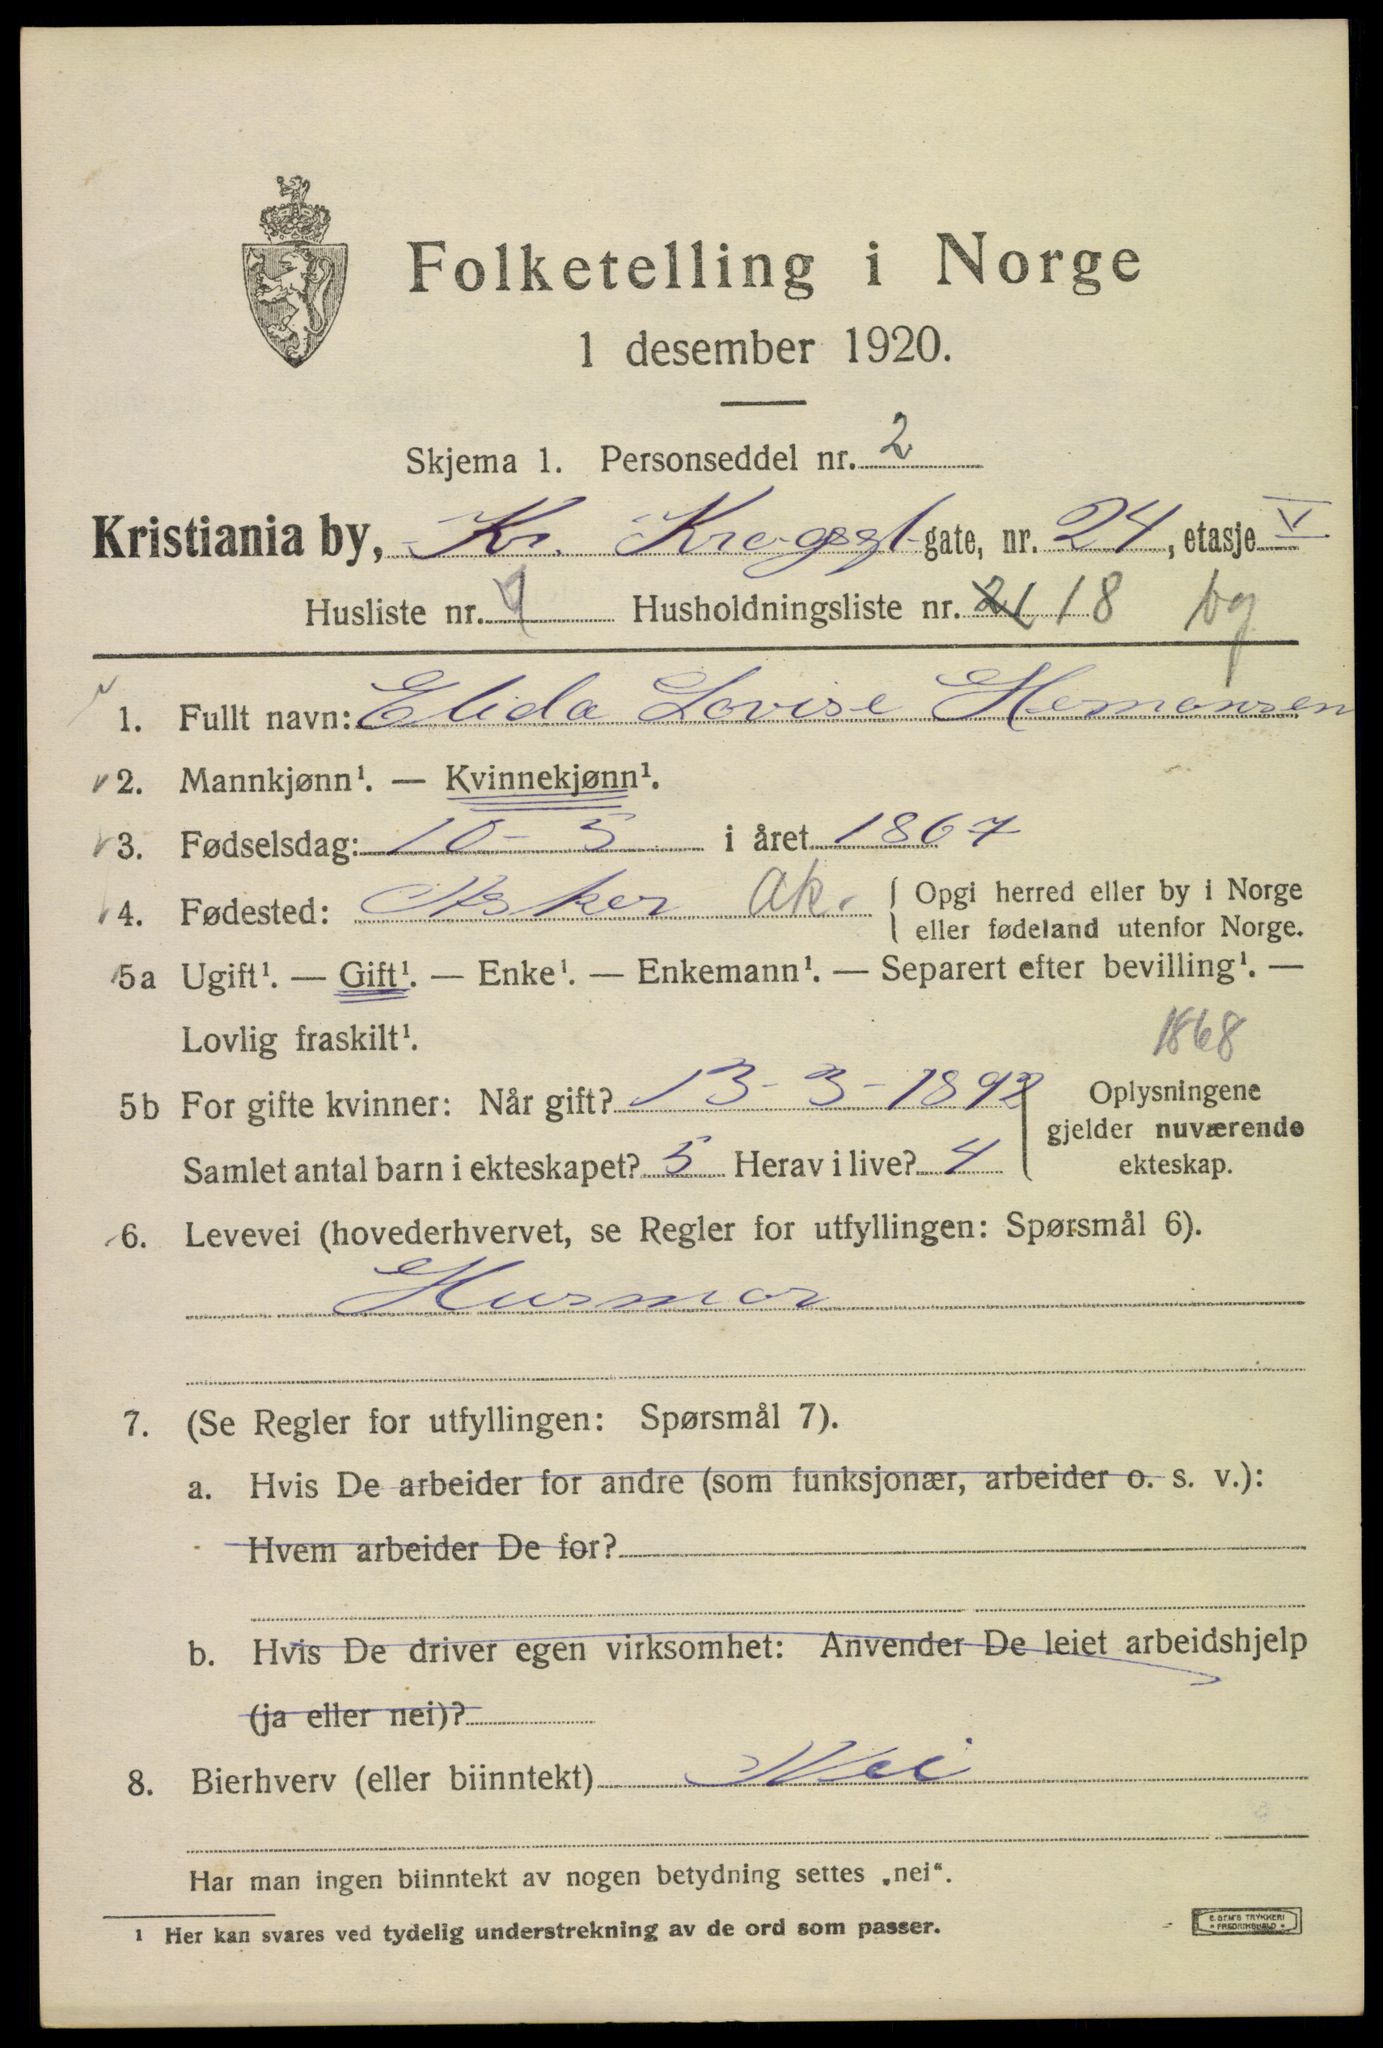 Folketelling i Norge
1 desember 1920.
Skjema 1. Personseddel nr. 2
Kristiania by, Kr. Krogsgt. gate, nr. 24, etasje V
Husliste nr. 9 Husholdningsliste nr. 21 18 bg
1. Fullt navn: Elida Lovise Hermansen
2. Mannkjønn¹. — Kvinnekjønn¹.
3. Fødselsdag: 10 - 5 i året 1867
4. Fødested: Asker Ak. { Opgi herred eller by i Norge
eller fødeland utenfor Norge.
5a Ugift¹. — Gift¹. — Enke¹. — Enkemann¹. — Separert efter bevilling¹. —
Lovlig fraskilt¹. 1868
5b For gifte kvinner: Når gift? 13 - 3 - 1892 Oplysningene
gjelder nuværende
Samlet antal barn i ekteskapet? 5 Herav i live? 4 ekteskap.
6. Levevei (hovederhvervet, se Regler for utfyllingen: Spørsmål 6).
Husmor
7. (Se Regler for utfyllingen: Spørsmål 7).
a. Hvis De arbeider for andre (som funksjonær, arbeider o. s. v.):
Hvem arbeider De for?
b. Hvis De driver egen virksomhet: Anvender De leiet arbeidshjelp
(ja eller nei)?
8. Bierhverv (eller biinntekt) Nei
Har man ingen biinntekt av nogen betydning settes „nei“.
1 Her kan svares ved tydelig understrekning av de ord som passer.
E. SEM'S TRYKKERI
FREDRIKSHALD